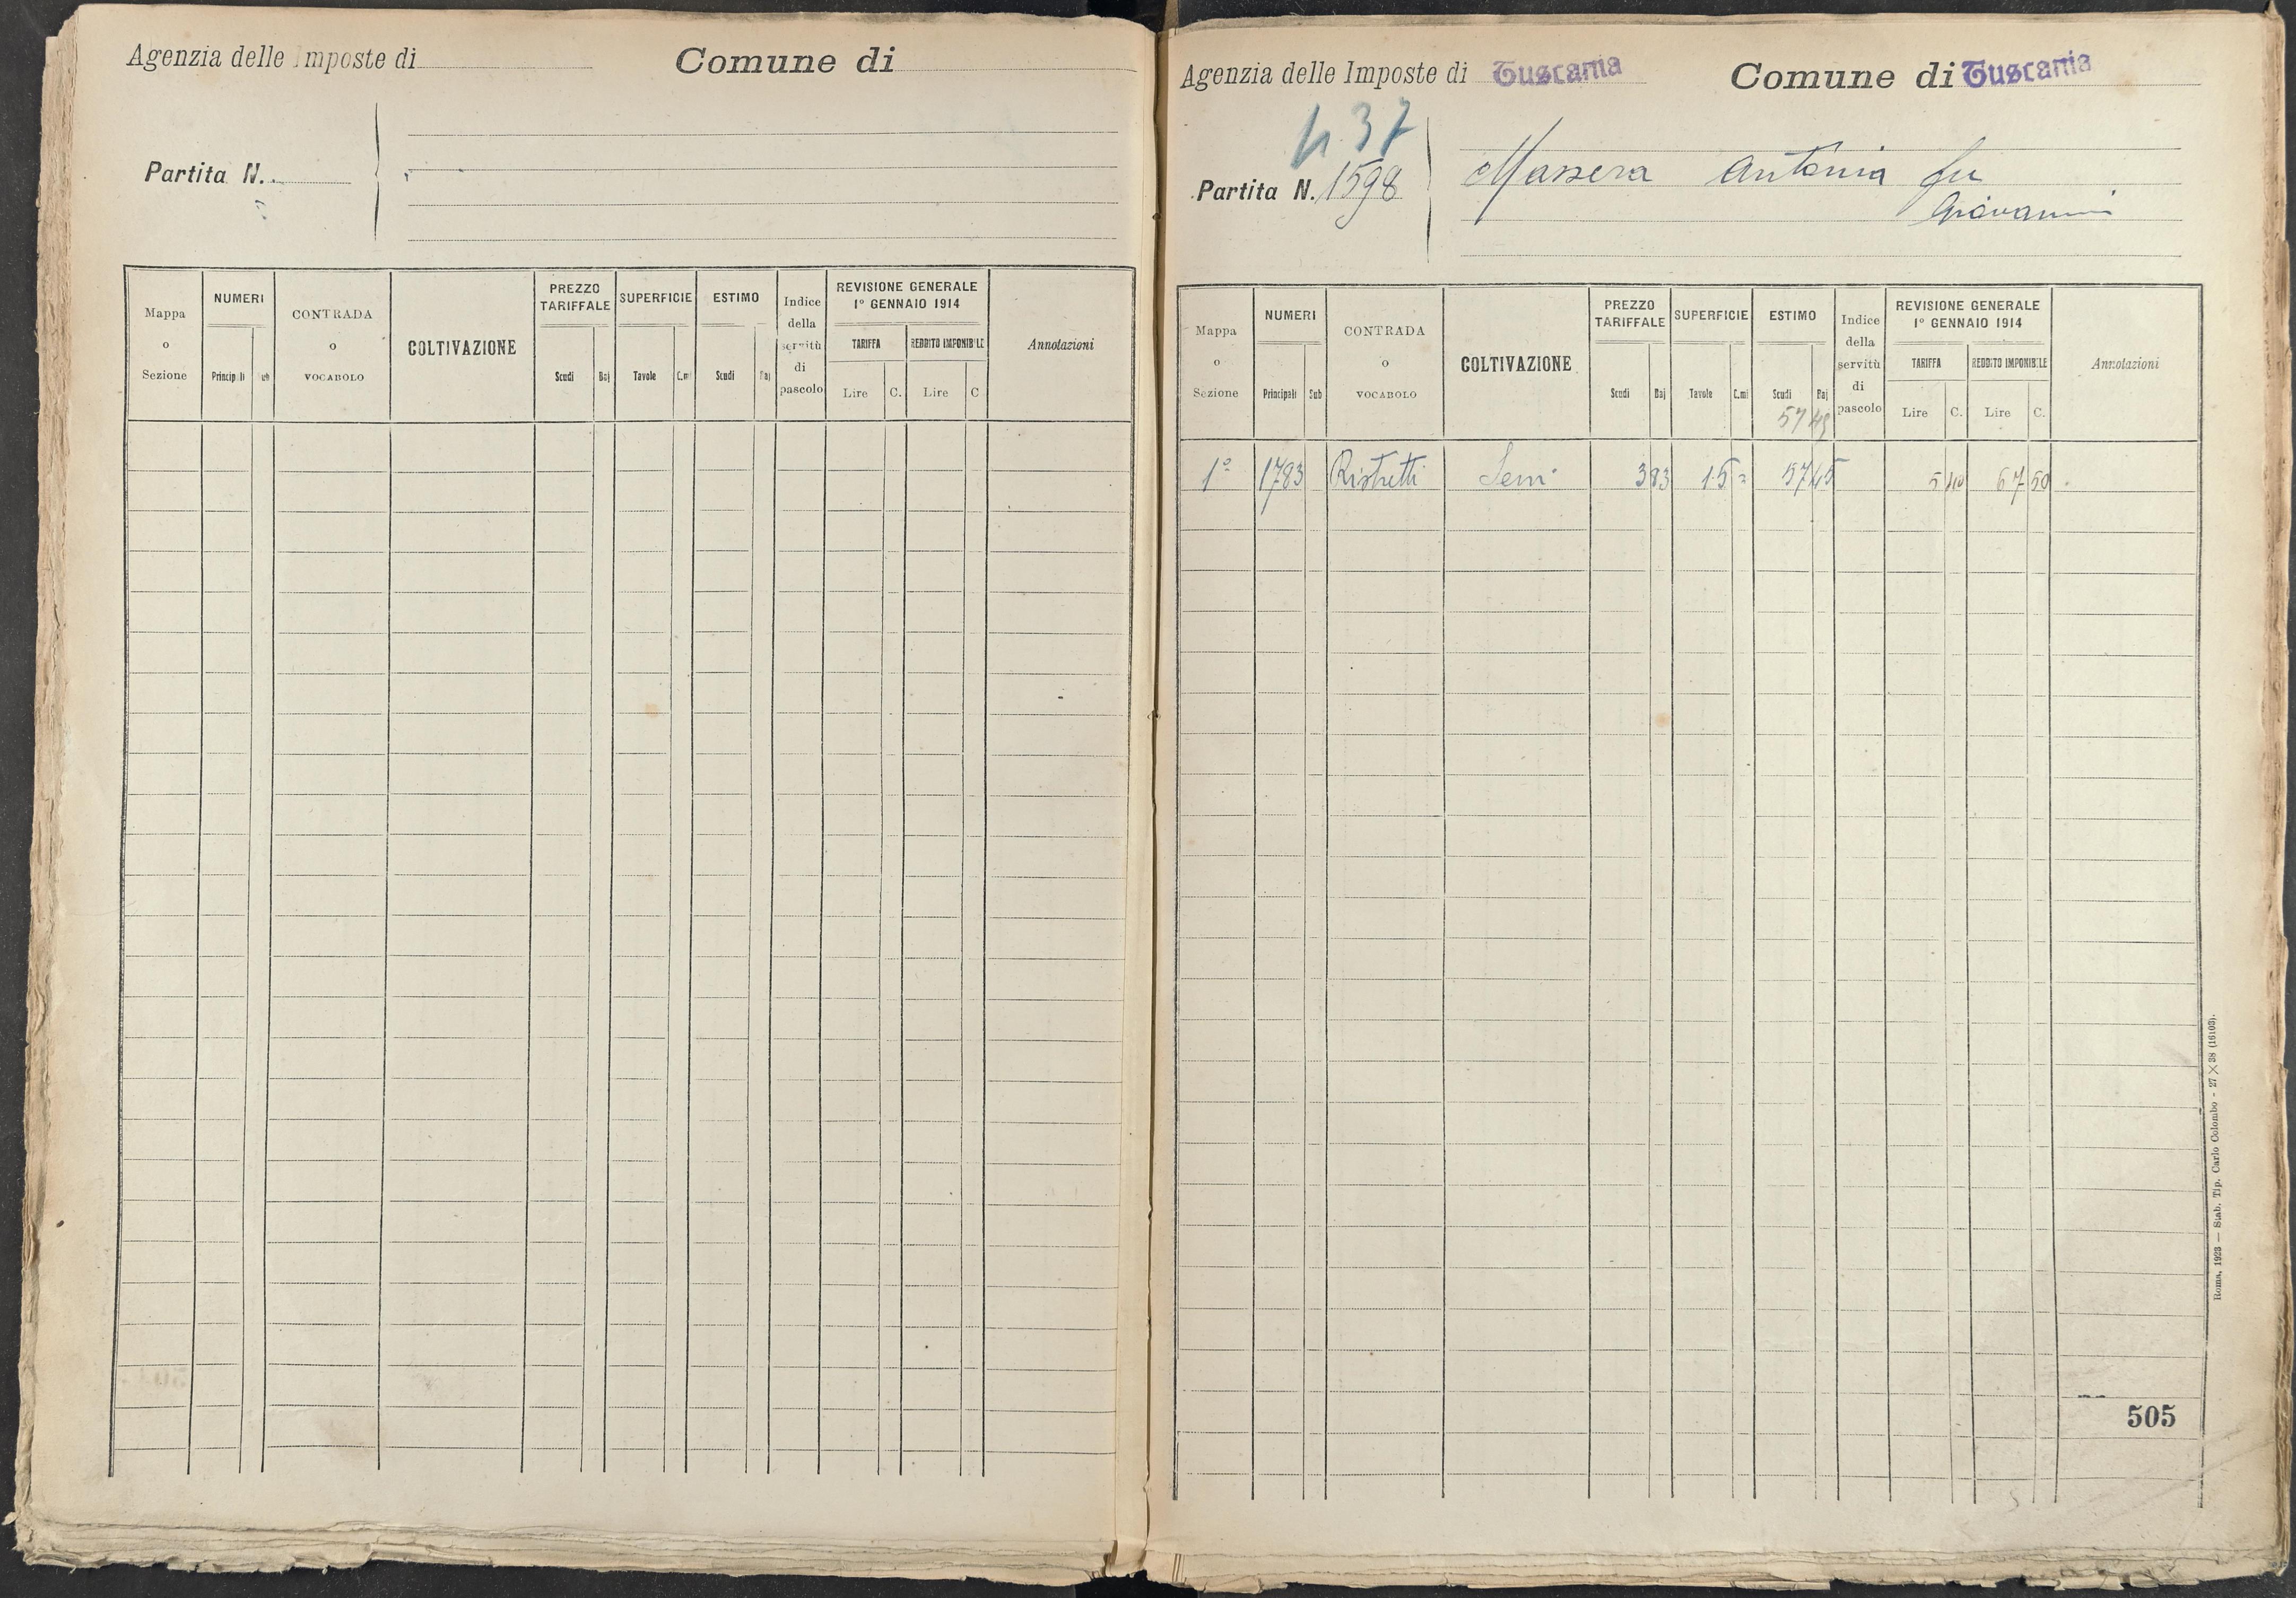 Agenzia delle Imposte di Comune di
Partita N.
Mappa o Sezione NUMERI CONTRADA o VOCABOLO COLTIVAZIONE PREZZO TARIFFALE SUPERFICIE ESTIMO Indice della servitù di pascolo REVISIONE GENERALE 1° GENNAIO 1914 Annotazioni
TARIFFA REDDITO IMPONIBILE
Principali Sub Scudi Baj Tavole C.mi Scudi Baj Lire C. Lire C
Agenzia delle Imposte di Tuscania Comune di Tuscania
437
Partita N. 1598 Massera Antonia fu
Giovanni
Mappa o Sezione NUMERI CONTRADA o VOCABOLO COLTIVAZIONE PREZZO TARIFFALE SUPERFICIE ESTIMO Indice della servitù di pascolo REVISIONE GENERALE 1° GENNAIO 1914 Annotazioni
TARIFFA REDDITO IMPONIBILE
Principali Sub Scudi Baj Tavole C.mi Scudi Baj Lire C. Lire C.
57 45
1° 1783 Ristretti Sem 3 83 15 = 57 45 5 40 67 50
505
Roma, 1923 — Stab. Tip. Carlo Colombo - 27 × 38 (16103).